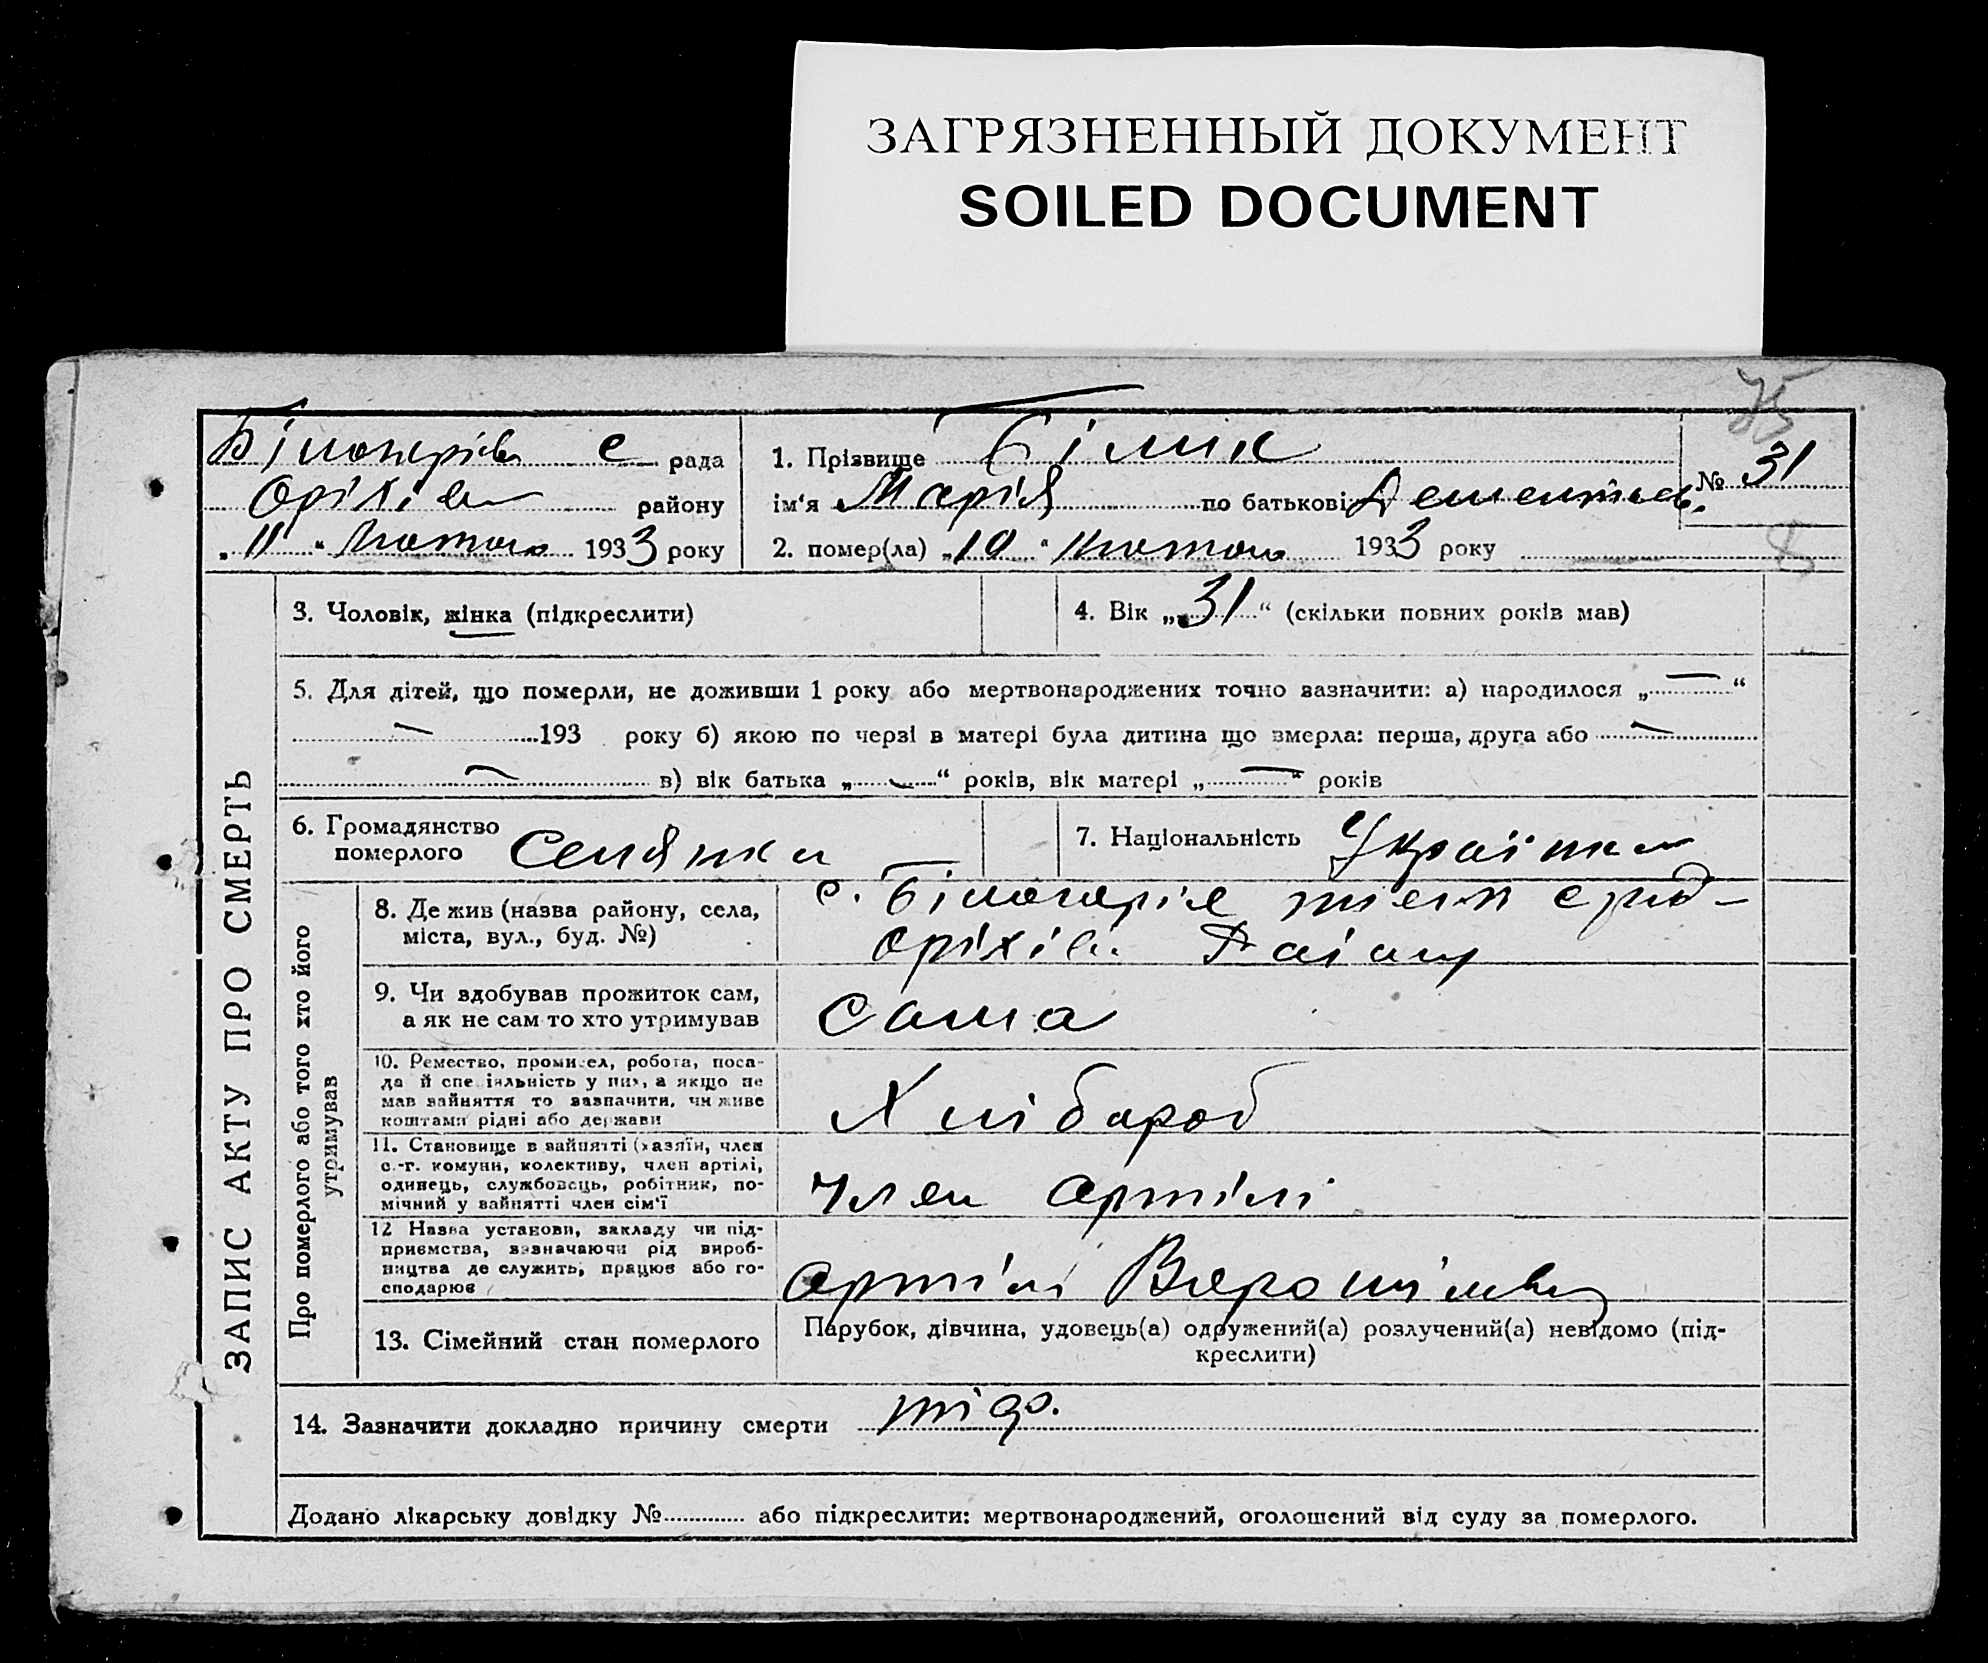 ЗАГРЯЗНЕННЫЙ ДОКУМЕНТ
SOILED DOCUMENT
75
с рада
Оріхів району
„11“ лютого 1933 року
1. Прізвище Білик
№ 31
ім‘я Марія по батькові
2. помер(ла) „10“ лютого 1933 року
ЗАПИС АКТУ ПРО СМЕРТЬ
3. Чоловік, жінка (підкреслити)
4. Вік „31“ (скільки повних років мав)
5. Для дітей, що померли, не доживши 1 року або мертвонароджених точно зазначити: а) народилося „—“
— 193 року б) якою по черзі в матері була дитина що змерла: перша, друга або —
— в) вік батька „—“ років, вік матері „—“ років
6. Громадянство померлого Селянка
7. Національність Українка
Про померлого або того хто його утримував
8. Де жив (назва району, села,
міста, вул., буд. №)
с.
Оріхів. Району
9. Чи здобував прожиток сам,
а як не сам то хто утримував
сама
10. Ремество, промисел, робота, поса-
да й спеціяльність у них, а якщо не
мав зайняття то зазначити, чи живе
коштами рідні або держави
Хлібороб
11. Становище в зайнятті (хазяїн, член
с.-г. комуни, колективу, член артілі,
одинець, службовець, робітник, по-
мічний у зайнятті член сім‘ї
Член артілі
12 Назва установи, закладу чи під-
приємства, зазначаючи рід вироб-
ництва де служить, працює або го-
сподарює
артілі
13. Сімейний стан померлого
Парубок, дівчина, удовець(а) одружений(а) розлучений(а) невідомо (під-
креслити)
14. Зазначити докладно причину смерти
Додано лікарську довідку № або підкреслити: мертвонароджений, оголошений від суду за померлого.